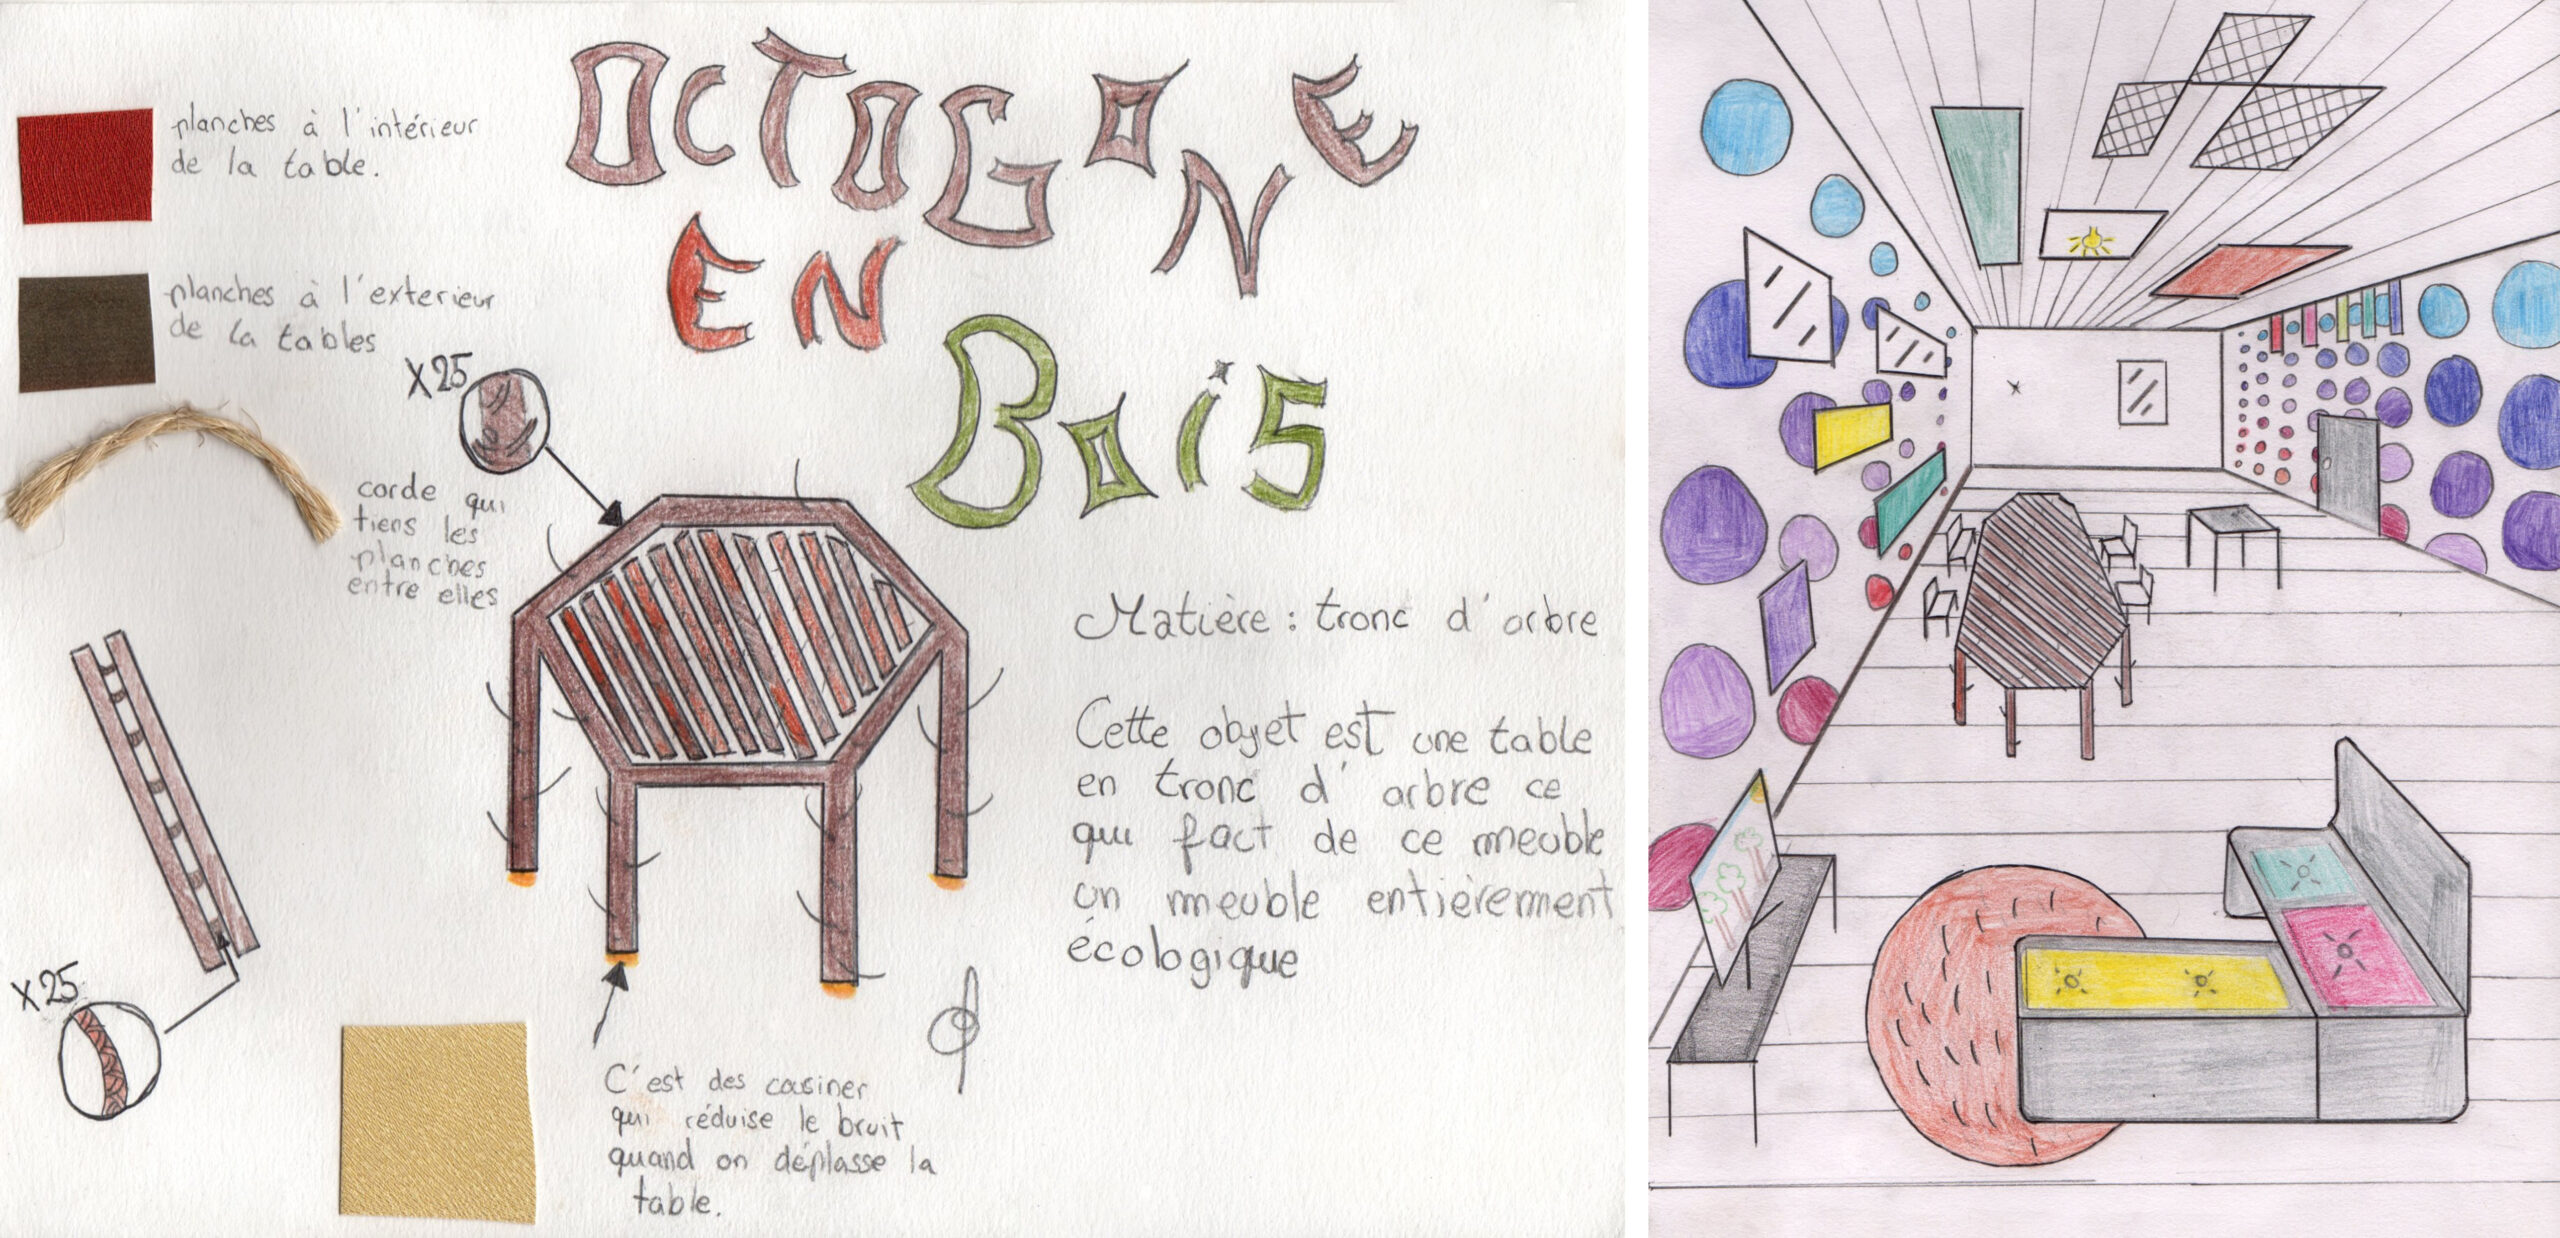 OCTOGONE
EN
BoiS
planches à l'intérieur
de la table.
planches à l'exterieur
de la tables
X25
corde qui
tiens les
planches
entre elles
X25
Matière : tronc d'arbre
Cette objet est une table
en tronc d'arbre ce
qui fact de ce meuble
un meuble entièrement
écologique
C'est des cousiner
qui réduise le bruit
quand on déplasse la
table.